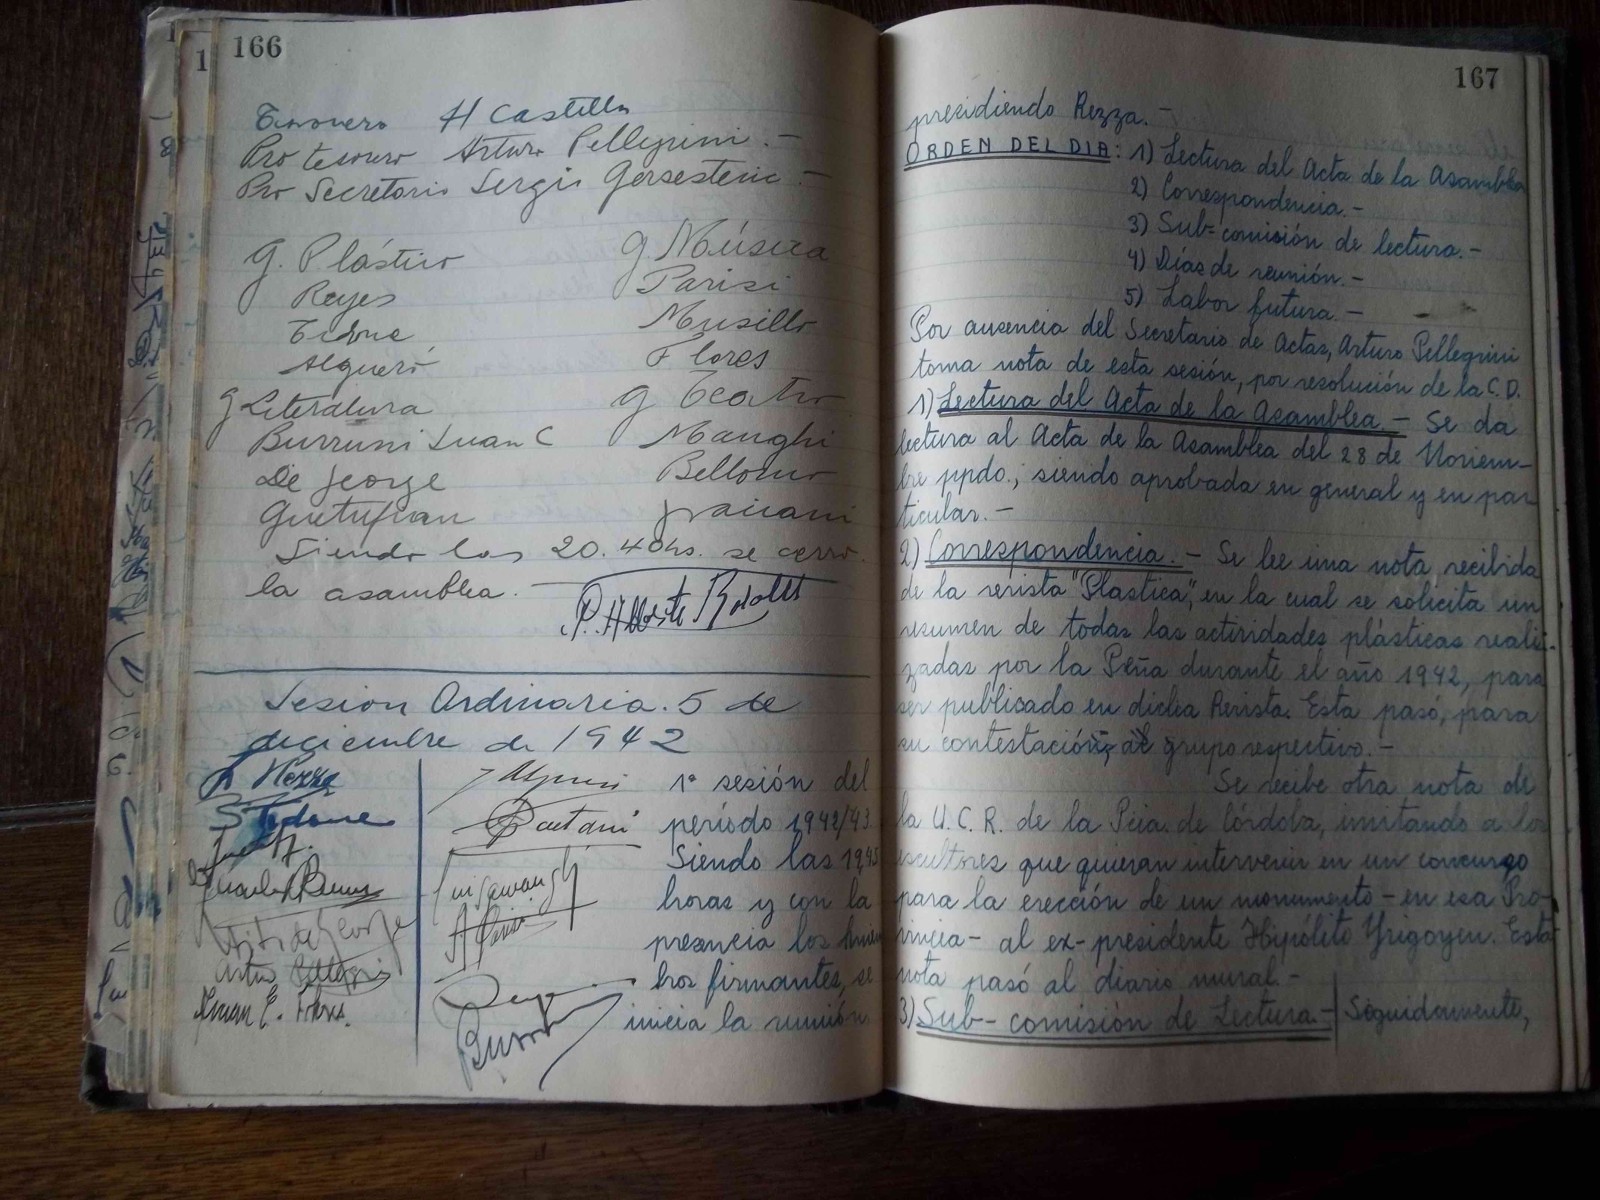 166
Tesorero H Castilla
Pro tesorero Arturo Pellegrini. -
Pro Secretario Sergio -
G. Plástico G. Música
Reyes Parisi
Tedone Musillo
Algueró Flores
G Literatura G Teatro
Burruni Juan C Manghi
De Jeorge Bellomo
Siendo las 20.40hs. se cerro
la asamblea. -
Sesion Ordinaria. 5 de
diciembre de 1942
Rezza
S Tedone
Arturo Pellegrini
Juan C. Flores.
1ª sesión del
período 1942/43.
Siendo las 19,45
horas y con la
presencia los miem
bros firmantes, se
inicia la reunión
167
presidiendo Rezza. -
ORDEN DEL DIA: 1) Lectura del Acta de la Asamblea
2) Correspondencia. -
3) Sub-comisión de lectura. -
4) Días de reunión. -
5) Labor futura. -
Por ausencia del Secretario de Actas, Arturo Pellegrini
toma nota de esta sesión, por resolución de la C.D.
1) Lectura del Acta de la Asamblea. - Se da
lectura al Acta de la Asamblea del 28 de Noviem-
bre ppdo.; siendo aprobada en general y en par
ticular. -
2) Correspondencia. - Se lee una nota recibida
de la revista "Plastica", en la cual se solicita un
resumen de todas las actividades plásticas reali-
zadas por la Peña durante el año 1942, para
ser publicado en dicha Revista. Esta pasó, para
su contestación, al grupo respectivo. -
Se recibe otra nota de
la U.C.R. de la Pcia. de Córdoba, invitando a los
escultores que quieran intervenir en un concurso
para la erección de un monumento - en esa Pro-
vincia - al ex-presidente Hipólito Yrigoyen. Esta
nota pasó al diario mural. -
3) Sub-comisión de Lectura. - Seguidamente,